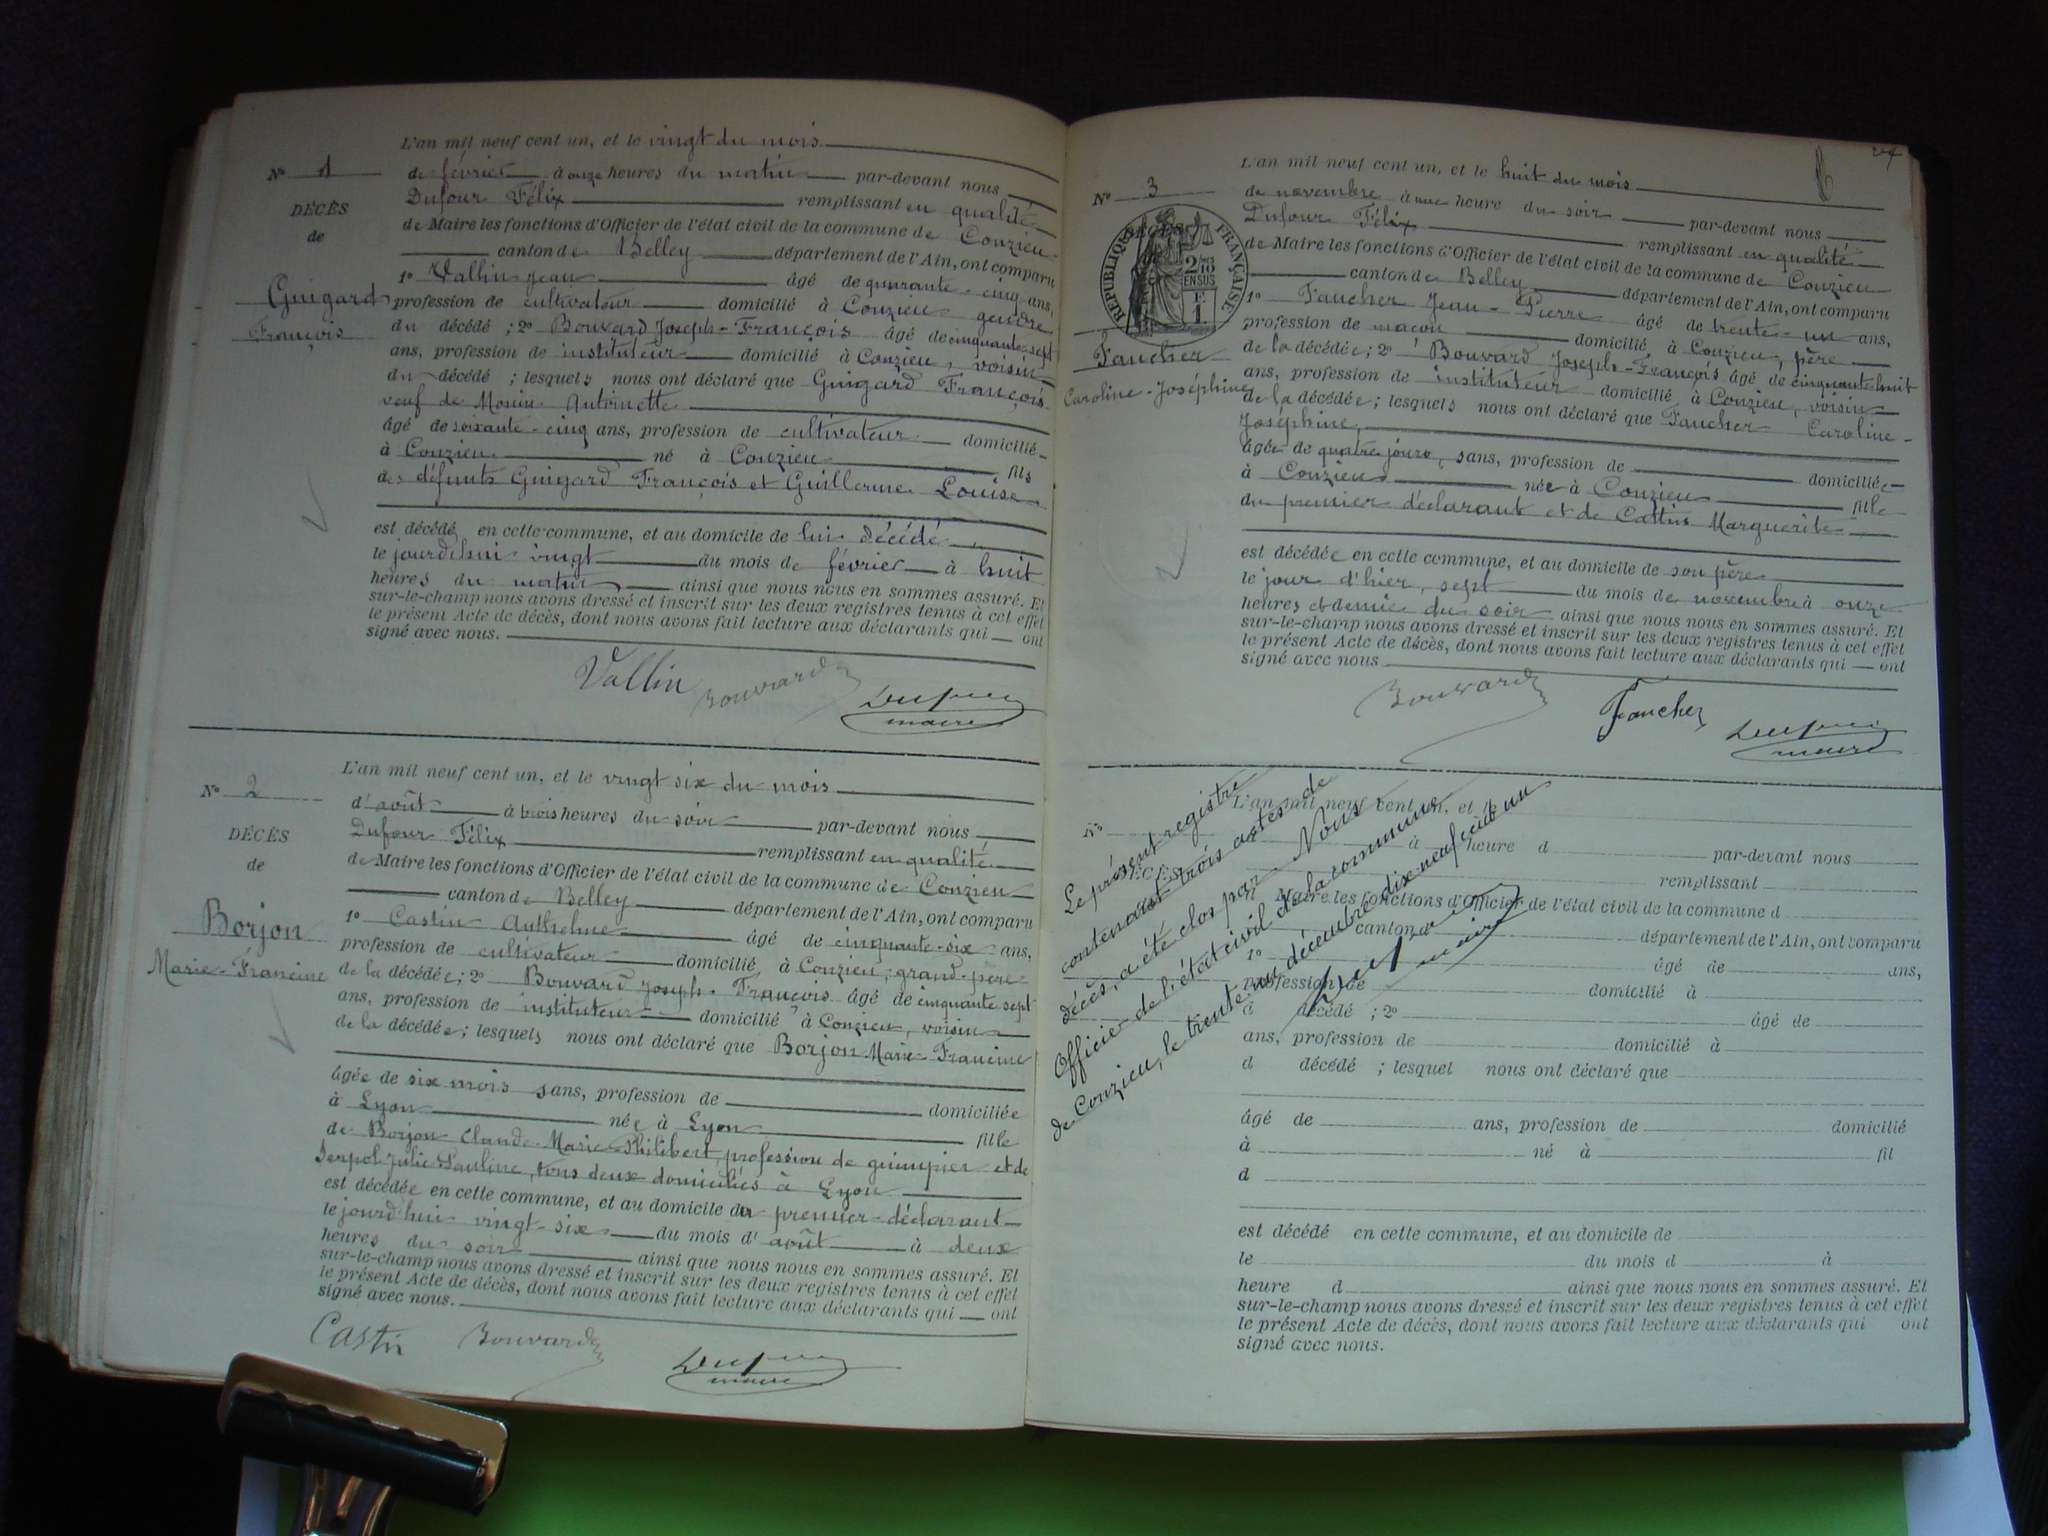 L'an mil neuf cent un, et le vingt du mois
N° 1
de février à onze heures du matin par-devant nous
DÉCÈS
Dufour Félix remplissant en qualité
de
de Maire les fonctions d'Officier de l'état civil de la commune de Conzieu
canton de Belley département de l'Ain, ont comparu
1° Vallin Jean âgé de quarante-cinq ans,
Guigard
François
profession de cultivateur domicilié à Conzieu gendre
du décédé ; 2° Bouvard Joseph-François âgé de cinquante-sept
ans, profession de instituteur domicilié à Conzieu, voisin
du décédé ; lesquels nous ont déclaré que Guigard François
veuf de Monin Antoinette
âgé de soixante-cinq ans, profession de cultivateur domicilié
à Conzieu né à Conzieu fils
des défunts Guigard François et Guillerme Louise
est décédé en cette commune, et au domicile de lui décédé
le jourd'hui vingt du mois de février à huit
heures du matin ainsi que nous nous en sommes assuré. Et
sur-le-champ nous avons dressé et inscrit sur les deux registres tenus à cet effet
le présent Acte de décès, dont nous avons fait lecture aux déclarants qui ont
signé avec nous.
Vallin Bouvard Dufour
maire
L'an mil neuf cent un, et le vingt six du mois
N° 2
d'août à trois heures du soir par-devant nous
DÉCÈS
Dufour Félix remplissant en qualité
de
de Maire les fonctions d'Officier de l'état civil de la commune de Conzieu
canton de Belley département de l'Ain, ont comparu
Borjon
Marie-Francine
1° Castin Anthelme âgé de cinquante-six ans,
profession de cultivateur domicilié à Conzieu, grand-père
de la décédée ; 2° Bouvard Joseph-François âgé de cinquante sept
ans, profession de instituteur domicilié à Conzieu, voisin
de la décédée ; lesquels nous ont déclaré que Borjon Marie-Francine
âgée de six mois sans, profession de domiciliée
à Lyon née à Lyon fille
de Borjon Claude-Marie-Philibert, profession de guimpier et de
Julie Pauline, tous deux domiciliés à Lyon
est décédée en cette commune, et au domicile du premier déclarant
le jourd'hui vingt-six du mois d'août à deux
heures du soir ainsi que nous nous en sommes assuré. Et
sur-le-champ nous avons dressé et inscrit sur les deux registres tenus à cet effet
le présent Acte de décès, dont nous avons fait lecture aux déclarants qui ont
signé avec nous.
Castin Bouvard Dufour
maire
24
L'an mil neuf cent un, et le huit du mois
N° 3
de novembre à une heure du soir par-devant nous
DÉCÈS
RÉPUBLIQUE FRANÇAISE
2/10 EN SUS
Dufour Félix remplissant en qualité
de Maire les fonctions d'Officier de l'état civil de la commune de Conzieu
canton de Belley département de l'Ain, ont comparu
1° Faucher Jean-Pierre âgé de trente-un ans,
profession de maçon domicilié à Conzieu, père
Faucher
Caroline-Joséphine
de la décédée ; 2° Bouvard Joseph-François âgé de cinquante-huit
ans, profession de instituteur domicilié à Conzieu, voisin
de la décédée ; lesquels nous ont déclaré que Faucher Caroline-
Joséphine,
âgée de quatre jours, sans, profession de domiciliée
à Conzieu née à Conzieu fille
du premier déclarant et de Castin Marguerite
est décédée en cette commune, et au domicile de son père
le jour d'hier, sept du mois de novembre à onze
heures et demie du soir ainsi que nous nous en sommes assuré. Et
sur-le-champ nous avons dressé et inscrit sur les deux registres tenus à cet effet
le présent Acte de décès, dont nous avons fait lecture aux déclarants qui ont
signé avec nous
Bouvard Faucher Dufour
maire
Le présent registre
contenant trois actes de
décès, a été clos par Nous
Officier de l'état civil de la commune
de Conzieu, le trente un décembre dix neuf cent un
maire
L'an mil neuf cent un, et l
N°
à heure d par-devant nous
DÉCÈS
remplissant
de Maire les fonctions d'Officier de l'état civil de la commune d
canton d département de l'Ain, ont comparu
1° âgé de ans,
profession de domicilié à
d décédé ; 2° âgé de
ans, profession de domicilié à
d décédé ; lesquel nous ont déclaré que
âgé de ans, profession de domicilié
à né à fil
d
est décédé en cette commune, et au domicile de
le du mois d à
heure d ainsi que nous nous en sommes assuré. Et
sur-le-champ nous avons dressé et inscrit sur les deux registres tenus à cet effet
le présent Acte de décès, dont nous avons fait lecture aux déclarants qui ont
signé avec nous.